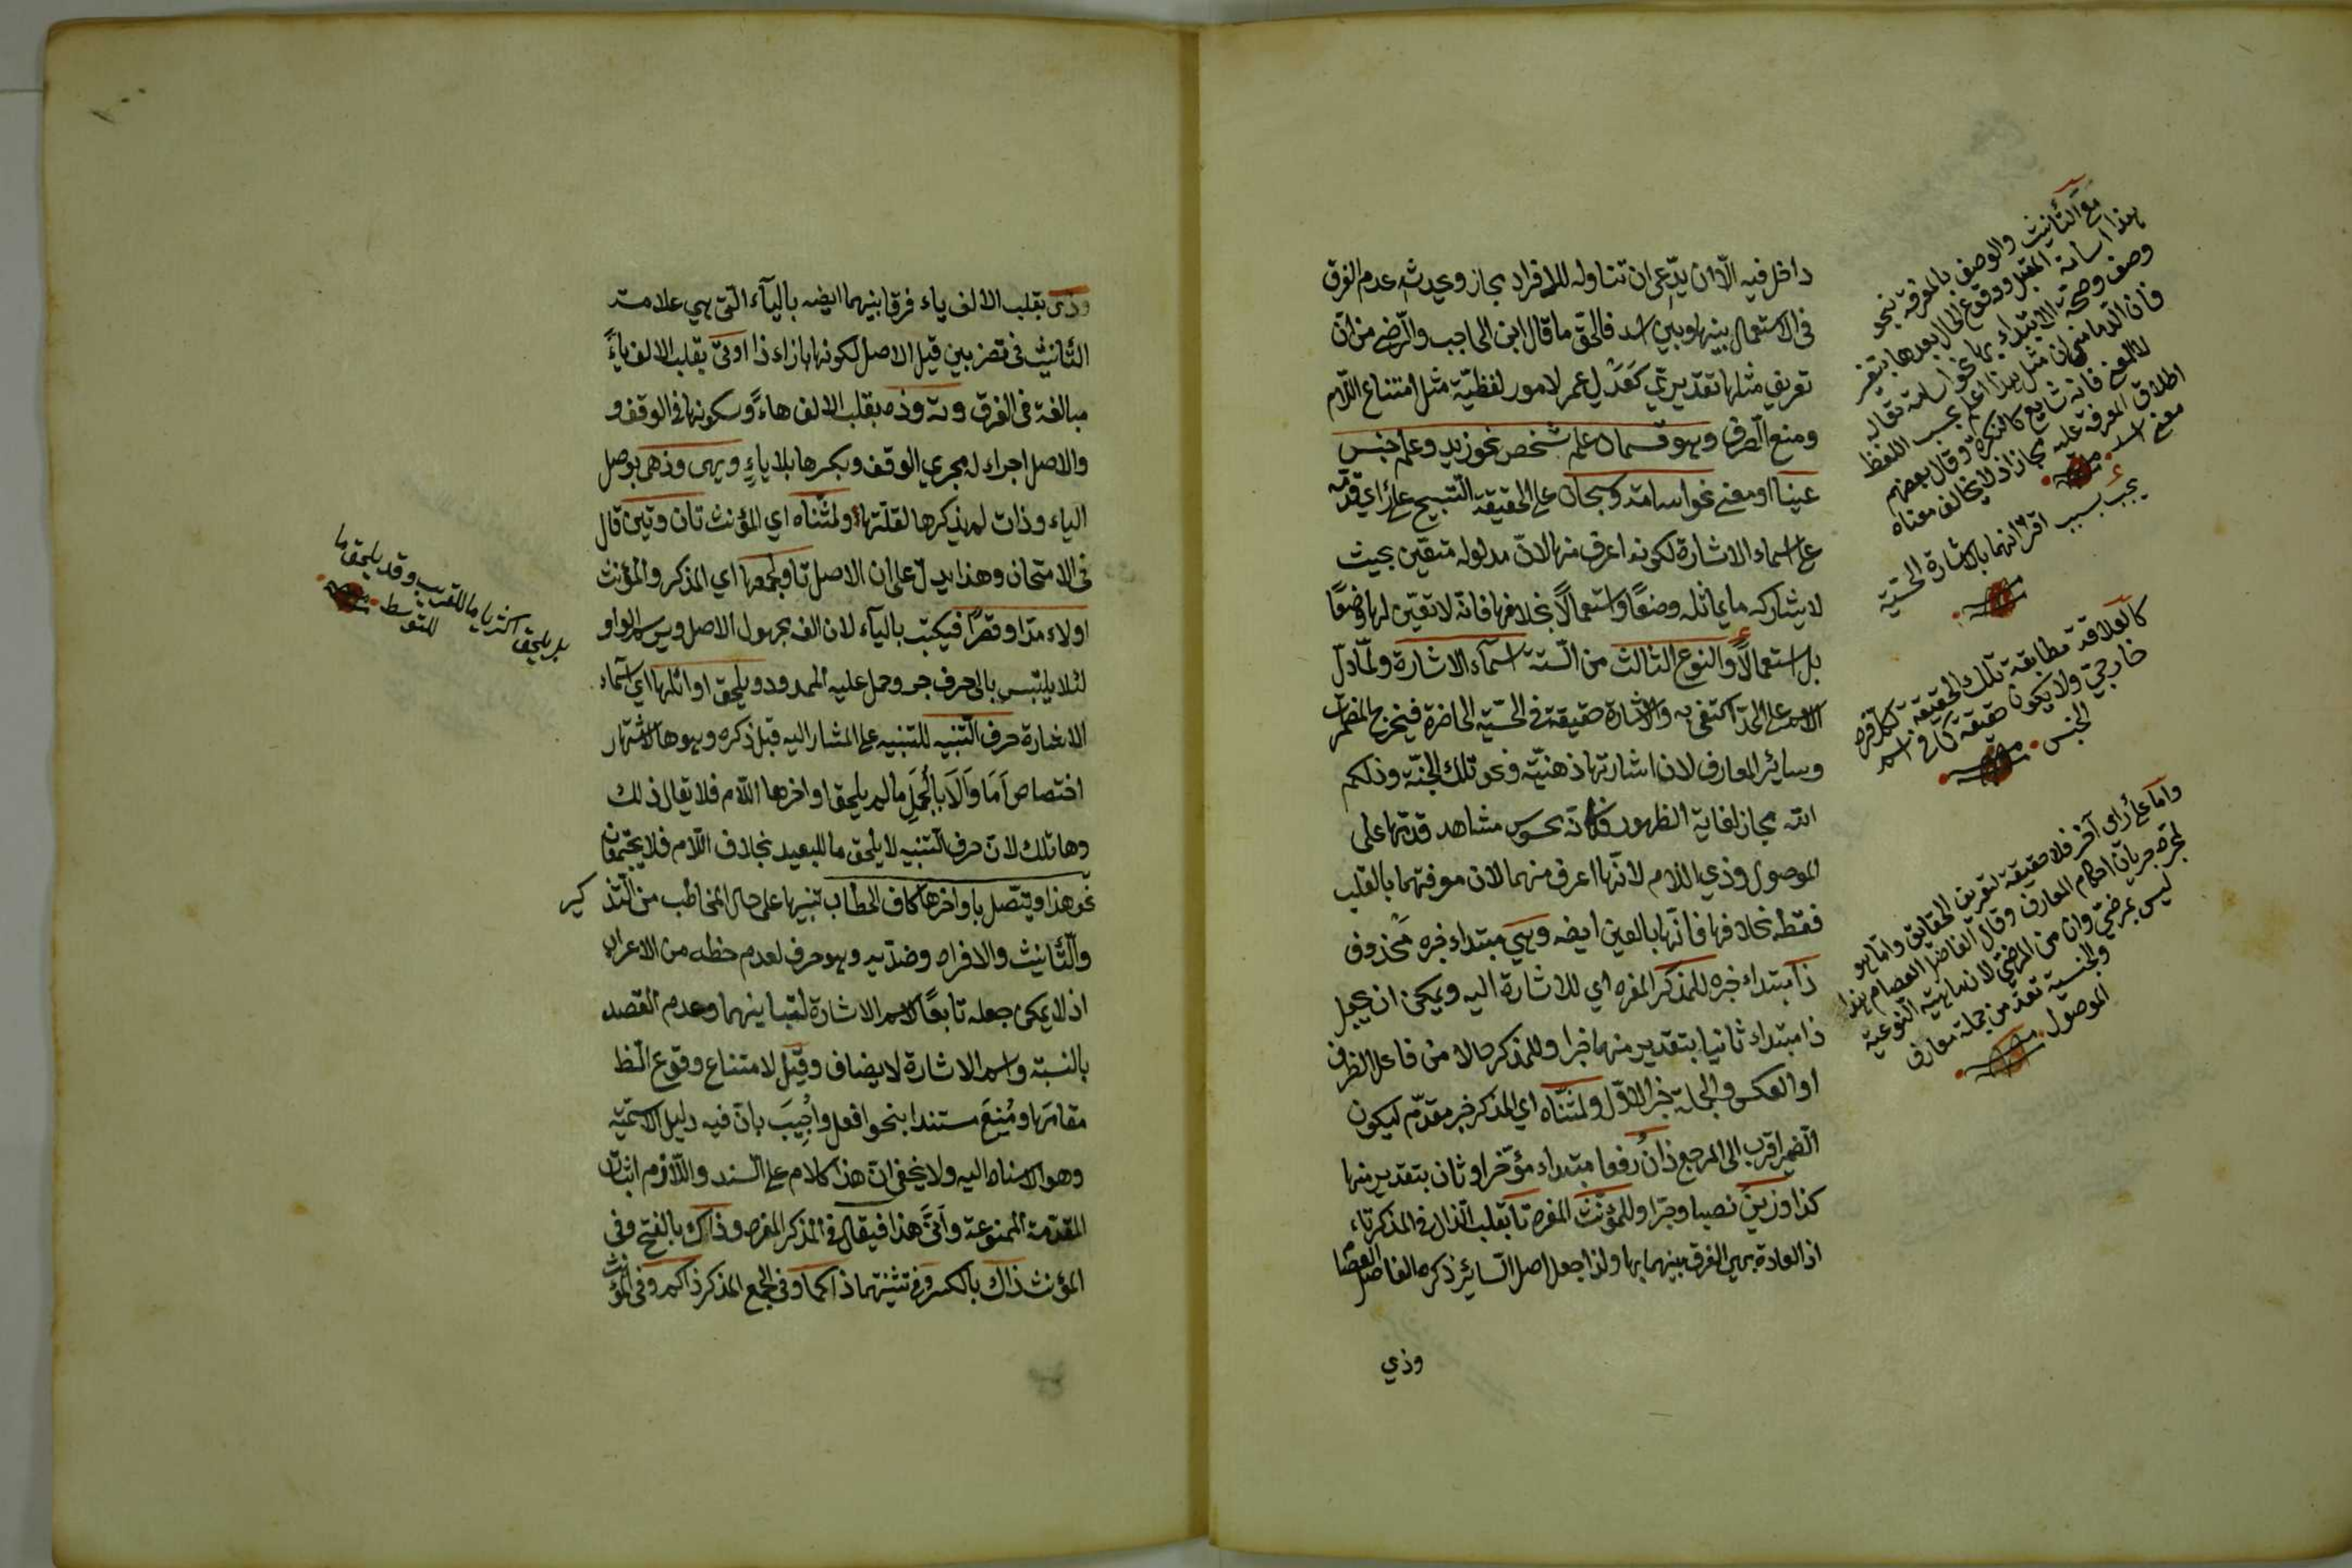 داخل فيه الّا ان يدّعى ان تناوله للافراد مجاز ويحدث عدم الفرق
فى الاستعمال بينها وبين اسد فالحق ما قال ابن الحاجب والرّضى من انّ
تعريف مثلها تقديري كعدل عمر لامور لفظيّة مثل امتناع اللّام
ومنع الصرف وهو قسمان علم شخص نحو زيد وعلم جنس
عينا او معنى نحو اسامة وسبحان على الحقيقة التسبيح على رأي قدمه
على اسماء الاشارة لكونه اعرف منها لانّ مدلوله متعين بحيث
لا يشاركه ما يماثله وضعًا واستعمالًا بخلافها فانّه لا تعيّن لها وضعًا
بل استعمالًا والنوع الثالث من الستة اسمآء الاشارة ولمّا دلّ
الاسم على الحدّ اكتفى به والاشارة حقيقة فى الحسّية الحاضرة فيخرج المضمرات
وسائر المعارف لان اشارتها ذهنيّة ونحو تلك الجنّة وذلكم
الله مجاز لغاية الظهور فكانه محسوس مشاهد قدمها على
الموصول وذي اللام لانّها اعرف منهما لان معرفتهما بالقلب
فقط بخلافها فانّها بالعين ايضه وهي مبتداء خبره محذوف
ذا مبتداء خبره للمذكر المفرد اي للاشارة اليه ويمكن ان يجعل
ذا مبتداء ثانيا بتقدير منها خبرا وللمذكر حالا من فاعل الظرف
او العكس والجملة خبر الاوّل ولمثنّاه اي المذكر خبر مقدّم ليكون
الضمير اقرب الى المرجع ذان رفعا مبتداء مؤخر او ثان بتقدير منها
كذا وذين نصبا وجرّا وللمؤنث المفرد تا بقلب الذال فى المذكر تاء
اذ العادة بهي الفرق بينهما بها ولذا جعل اصل السائر ذكره الفاضل العصام
وذي
مع التأنيث والوصف بالمعرفة نحو
هذا اسامة المقبل ووقوع الحال بعدها بتغير
وصف وصحة الابتداء بها نحو اسامة تعاله
فان الدمامينى ان مثل هذا علم بحسب اللفظ
لا المعنى فانه شايع كالنكرة وقال بعضهم
اطلاق المعرفة عليه مجاز اذ لا يخالف معناه
معنى اسد
يجب بسبب اقترانهما بالاشارة الحسّية
كالعلاقة مطابقة تلك الحقيقة لكل فرد
خارجي ولا يكون حقيقة كما فى اسم
الجنس
واما على رأي آخر فلا حقيقة لتعريف الحقائق وانما هو
لمجرد جريان احكام المعارف وقال الفاضل العصام هذا
ليس بمرضيّ وان من المرضي لان ماهية النوعية
والجنسية تعدّ من جملة معارف
الموصول
وذى بقلب الالف ياء فرقا بينهما ايضه باليآء التى هي علامت
التأنيث فى تضربين قيل الاصل لكونها بازاء ذا اوتى بقلب الالف ياءً
مبالغة فى الفرق وته وذه بقلب الالف هاءً وسكونها فى الوقف و
والاصل اجراء له مجري الوقف وبكسرها بلا ياءٍ ويهى وذهى بوصل
الياء وذات لم يذكرها لقلتها ولمثناه اي المؤنث تان وتين قال
فى الامتحان وهذا يدلّ على ان الاصل تا ولجمعهما اي المذكر والمؤنث
اولاء مدّا وقصرًا فيكتب باليآء لان الف مجهول الاصل ويرسم الواو
لئلا يلتبس بالى حرف جر وحمل عليه الممدود ويلحق اوائلها اي اسماء
الاشارة حرف التنبيه للتنبيه على المشار اليه قبل ذكره وهو ها لاشتهار
اختصاص اَمَا وَاَلَا بالجُمَلِ ما لم يلحق اواخرها اللّام فلا يقال ذلك
وهاتلك لانّ حرف التنبيه لا يلحق ما للبعيد بخلاف اللّام فلا يجتمعان
نحو هذا ويتصل باواخرها كاف الخطاب تنبيها على حال المخاطب من التذ كير
والتّأنيث والافراد وضدّيه وهو حرف لعدم حظه من الاعراب
اذ لا يمكن جعله تابعًا لاسم الاشارة لتباينهما وعدم القصد
بالنسبة واسم الاشارة لا يضاف وقيل لامتناع وقوع الظ
مقامها ومُنِعَ مستندا بنحو افعل واُجِيبَ بان فيه دليل الاسميّة
وهو الاسناد اليه ولا يخفى انّ هذا كلام على السند واللّازم اثبات
المقدّمة الممنوعة وانّى هذا فيقال فى المذكر المفرد وذاك بالفتح وفى
المؤنث ذاك بالكسر وفى تثنيتهما ذاكما وفى الجمع المذكر ذاكم وفى المؤنث
بل يلحق اكثر يا ما للقريب وقد يلحق ما
للمتوسط